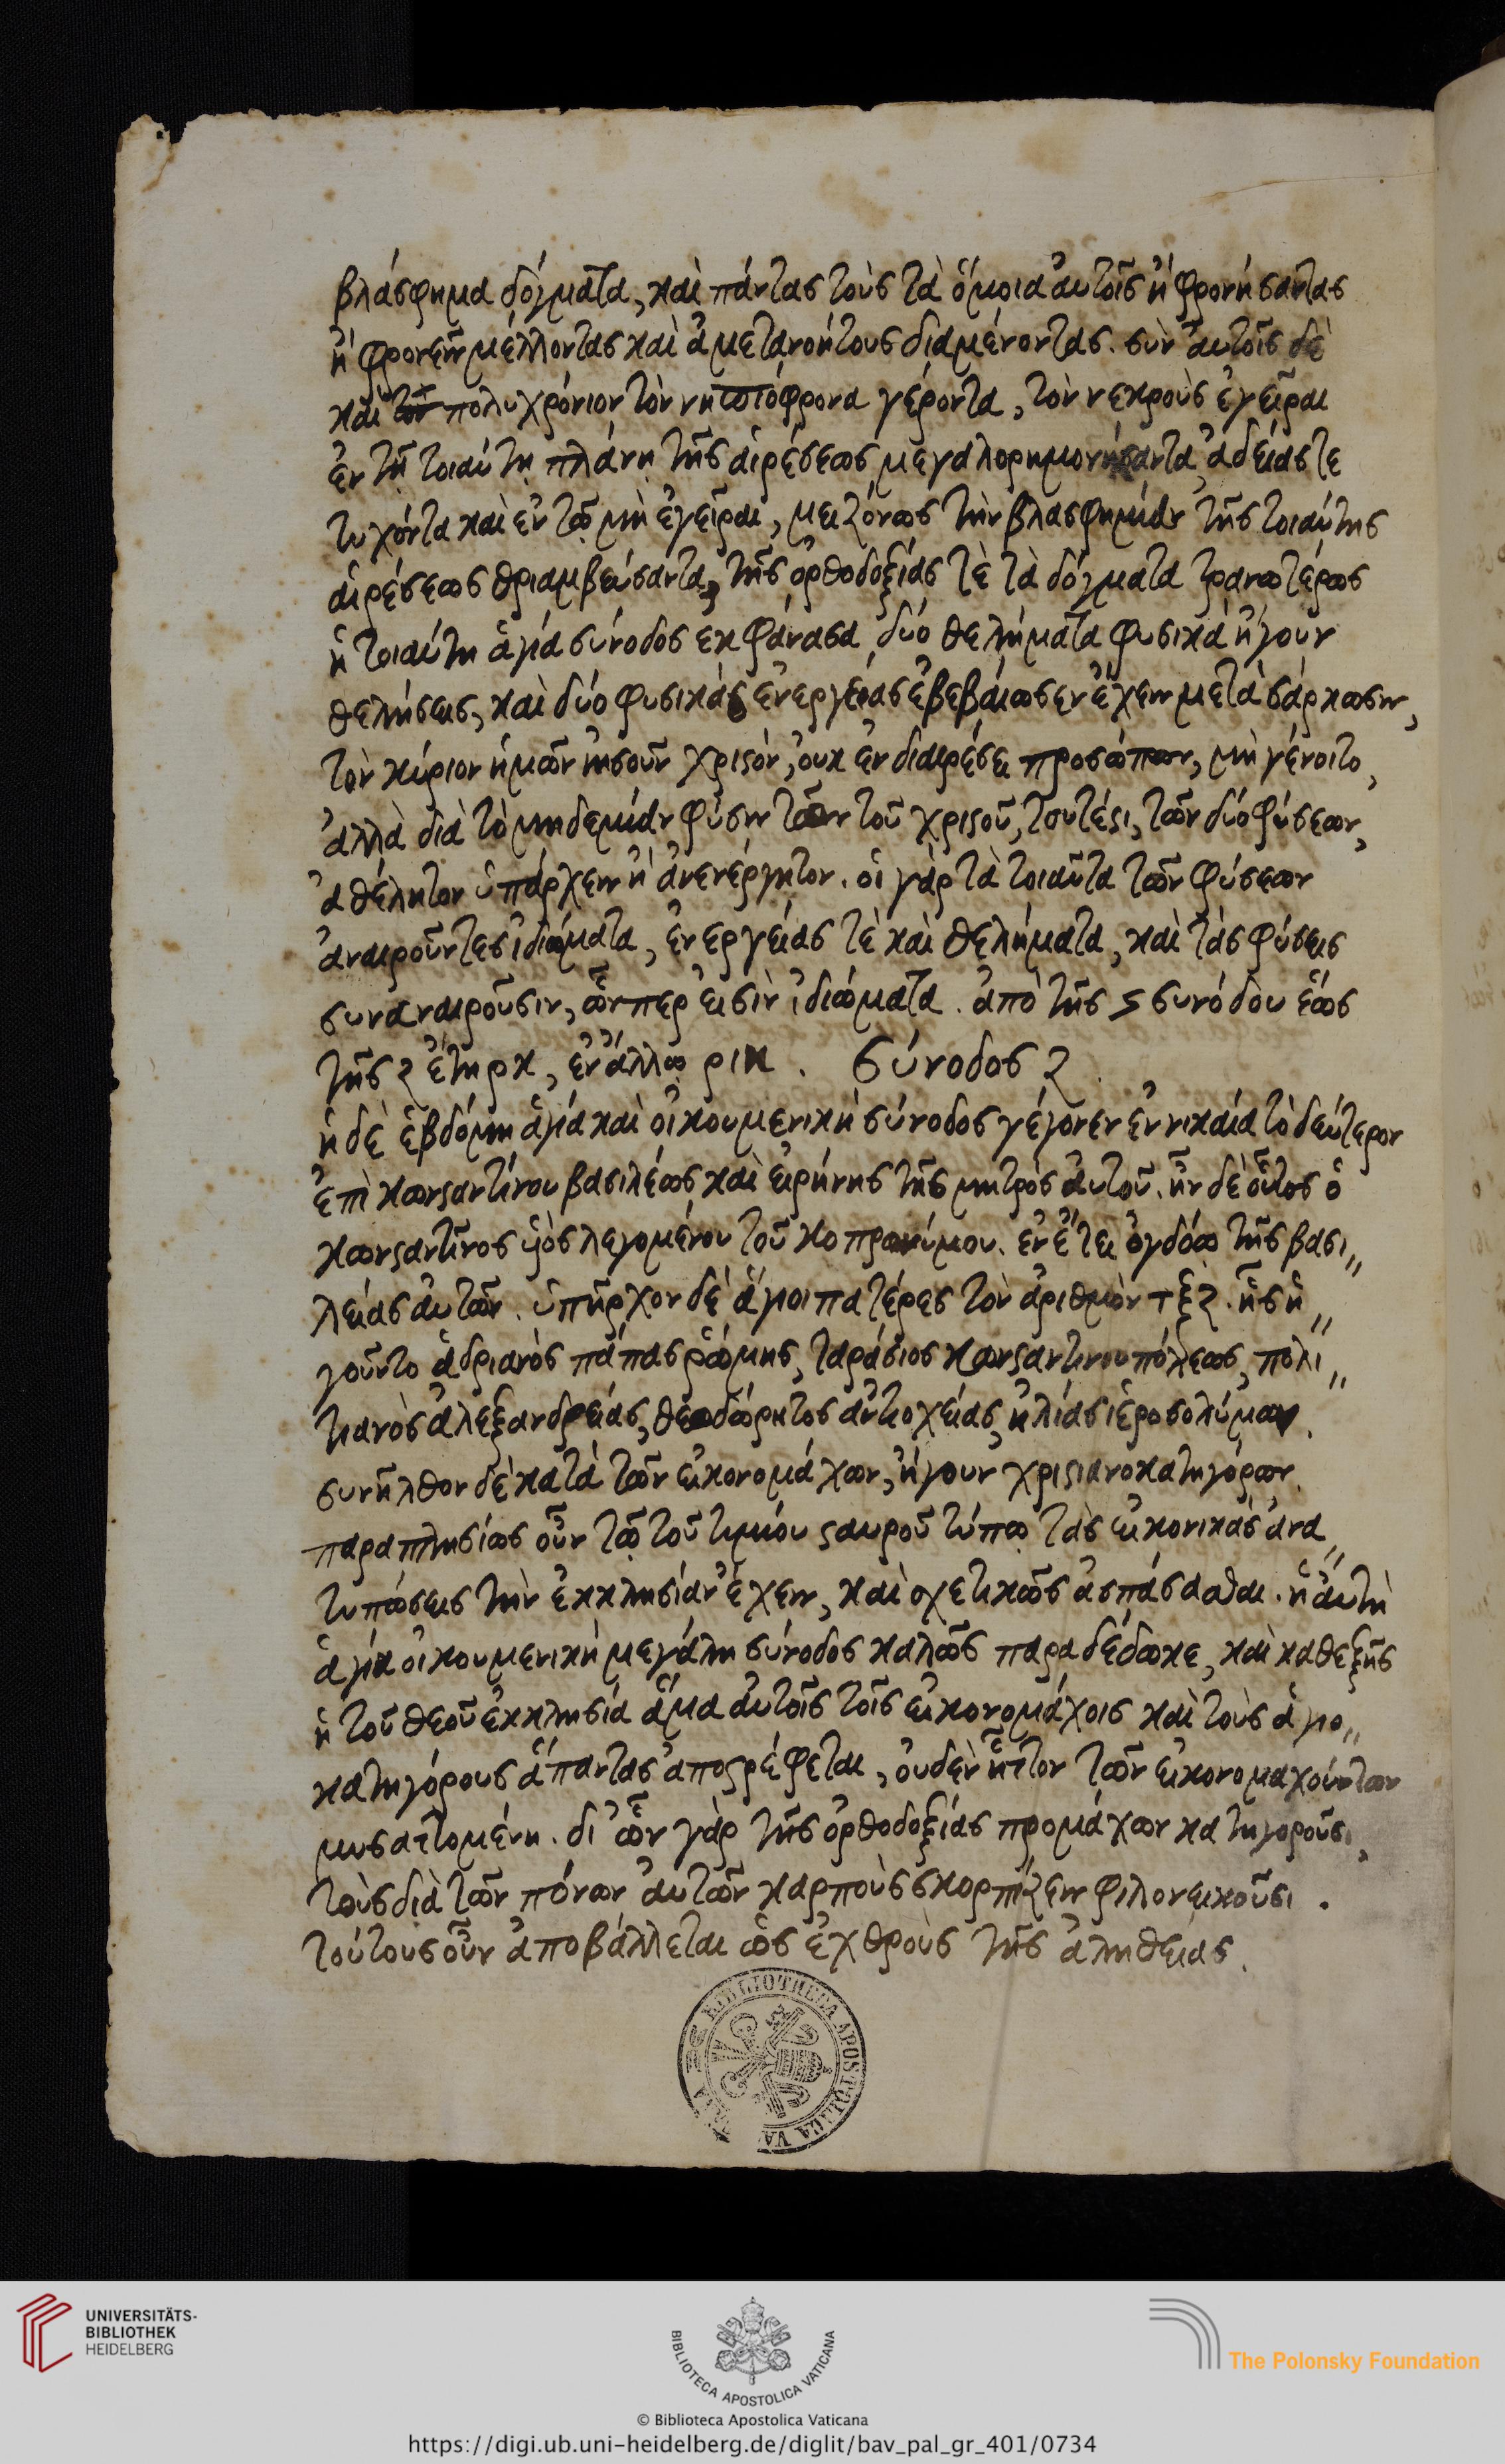 βλάσφημα δόγματα, καὶ πάντας τοὺς τὰ ὅμοια αὐτοῖς ἢ φρονήσαντας
ἢ φρονεῖν μέλλοντας καὶ ἀμετανοήτους διαμένοντας. σὺν αὐτοῖς δὲ
καὶ τὸν πολυχρόνιον τὸν νηπιόφρονα γέροντα, τὸν νεκροὺς ἐγεῖραι
ἐν τῇ τοιαύτῃ πλάνῃ τῆς αἱρέσεως μεγαλορημονήσαντα, ἀδείας τε
τυχόντα καὶ ἐν τῷ μὴ ἐγεῖραι, μειζόνως τὴν βλασφημίαν τῆς τοιαύτης
αἱρέσεως θριαμβεύσαντα, τῆς ὀρθοδοξίας τὲ τὰ δόγματα τρανωτέρως
ἡ τοιαύτη ἁγία σύνοδος ἐκφάνασα δύο θελήματα φυσικὰ ἤγουν
θελήσεις, καὶ δύο φυσικὰς ἐνεργείας ἐβεβαίωσεν ἔχειν μετὰ σάρκωσιν,
τὸν κύριον ἡμῶν ἰησοῦν χριστόν, οὐκ ἐν διαιρέσει προσώπων, μὴ γένοιτο,
ἀλλὰ διὰ τὸ μηδεμίαν φύσιν τῶν τοῦ χριστοῦ, τουτέστι, τῶν δύο φύσεων,
ἀθέλητον ὑπάρχειν ἢ ἀνενέργητον. οἱ γὰρ τὰ τοιαῦτα τῶν φύσεων
ἀναιροῦντες ἰδιώματα, ἐνεργείας τὲ καὶ θελήματα, καὶ τὰς φύσεις
συναναιροῦσιν, ὧνπερ εἰσὶν ἰδιώματα. ἀπὸ τῆς ϛ συνόδου ἕως
τῆς ζ ἔτη ρκ, ἐν ἄλλῳ ρικ. Σύνοδος ζ
ἡ δὲ ἑβδόμη ἁγία καὶ οἰκουμενικὴ σύνοδος γέγονεν ἐν νικαίᾳ τὸ δεύτερον
ἐπὶ κωνσταντίνου βασιλέως καὶ εἰρήνης τῆς μητρὸς αὐτοῦ. ἦν δὲ οὗτος ὁ
κωνσταντῖνος υἱὸς λεγομένου τοῦ κοπρωνύμου. ἐν ἔτει ὀγδόῳ τῆς βασι„
λείας αὐτῶν. ὑπῆρχον δὲ ἅγιοι πατέρες τὸν ἀριθμὸν τξζ. ἧς ἡ„
γοῦντο ἀδριανὸς πάπας ῥώμης, ταράσιος κωνσταντινουπόλεως, πολι„
τιανὸς ἀλεξανδρείας, θεοδώρητος ἀντιοχείας, ἠλίας ἱεροσολύμων.
συνῆλθον δὲ κατὰ τῶν εἰκονομάχων, ἤγουν χριστιανοκατηγόρων.
παραπλησίως οὖν τῷ τοῦ τιμίου σταυροῦ τύπῳ τὰς εἰκονικὰς ἀνα„
τυπώσεις τὴν ἐκκλησίαν ἔχειν, καὶ σχετικῶς ἀσπάσασθαι. ἡ αὐτὴ
ἁγία οἰκουμενικὴ μεγάλη σύνοδος καλῶς παραδέδωκε, καὶ καθεξῆς
ἡ τοῦ θεοῦ ἐκκλησία ἅμα αὐτοῖς τοῖς εἰκονομάχοις καὶ τοὺς ἁγιο„
κατηγόρους ἅπαντας ἀποστρέφεται, οὐδὲν ἧττον τῶν εἰκονομαχούντων
μυσαττομένη. δι' ὧν γὰρ τῆς ὀρθοδοξίας προμάχων κατηγοροῦσι,
τοὺς διὰ τῶν πόνων αὐτῶν καρποὺς σκορπίζειν φιλονεικοῦσι.
τούτους οὖν ἀποβάλλεται ὡς ἐχθροὺς τῆς ἀληθείας.
BIBLIOTHECA APOSTOLICA VA
UNIVERSITÄTS-
BIBLIOTHEK
HEIDELBERG
BIBLIOTECA APOSTOLICA VATICANA
The Polonsky Foundation
© Biblioteca Apostolica Vaticana
https://digi.ub.uni-heidelberg.de/diglit/bav_pal_gr_401/0734